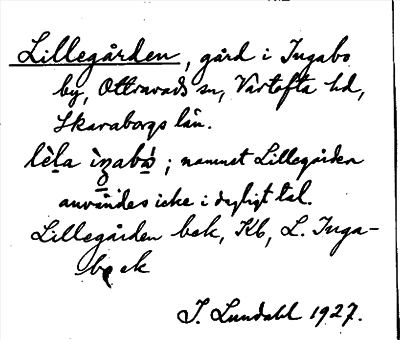 Lillegården, gård i Ingabo
by, Ottravads sn, Vartofta hd,
Skaraborgs län.
lèla ; namnet Lillegården
användes icke i dagligt tal.
Lillegården bek, Kb, L. Inga-
bo ek
J. Lundahl 1927.